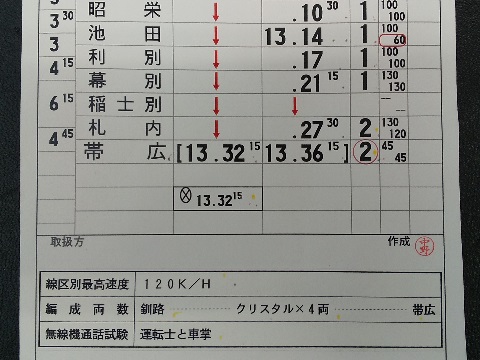 昭栄 ↓ .10 30 1 100 100
3 30
池田 ↓ 13.14 1 100 60
3
利別 ↓ .17 1 100 100
4 15
幕別 ↓ .21 15 1 130 130
6 15
稲士別 ↓ ↓ ― ―
4 45
札内 ↓ .27 30 2 130 120
帯広 [13.32 15 13.36 15] 2 45 45
ⓧ 13.32 15
取扱方 作成 中野
線区別最高速度 120K/H
編成両数 釧路 クリスタル×4両 帯広
無線機通話試験 運転士と車掌